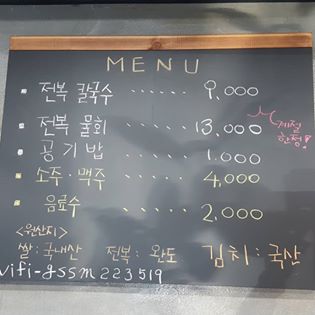 MENU
전복 칼국수 ...... 9,000
전복 물회 ...... 13,000
계절
한정!
공기밥 ...... 1,000
소주·맥주 ...... 4,000
음료수 ...... 2,000
<원산지>
쌀:국내산 전복: 완도 김치:국산
wifi-gssm223519